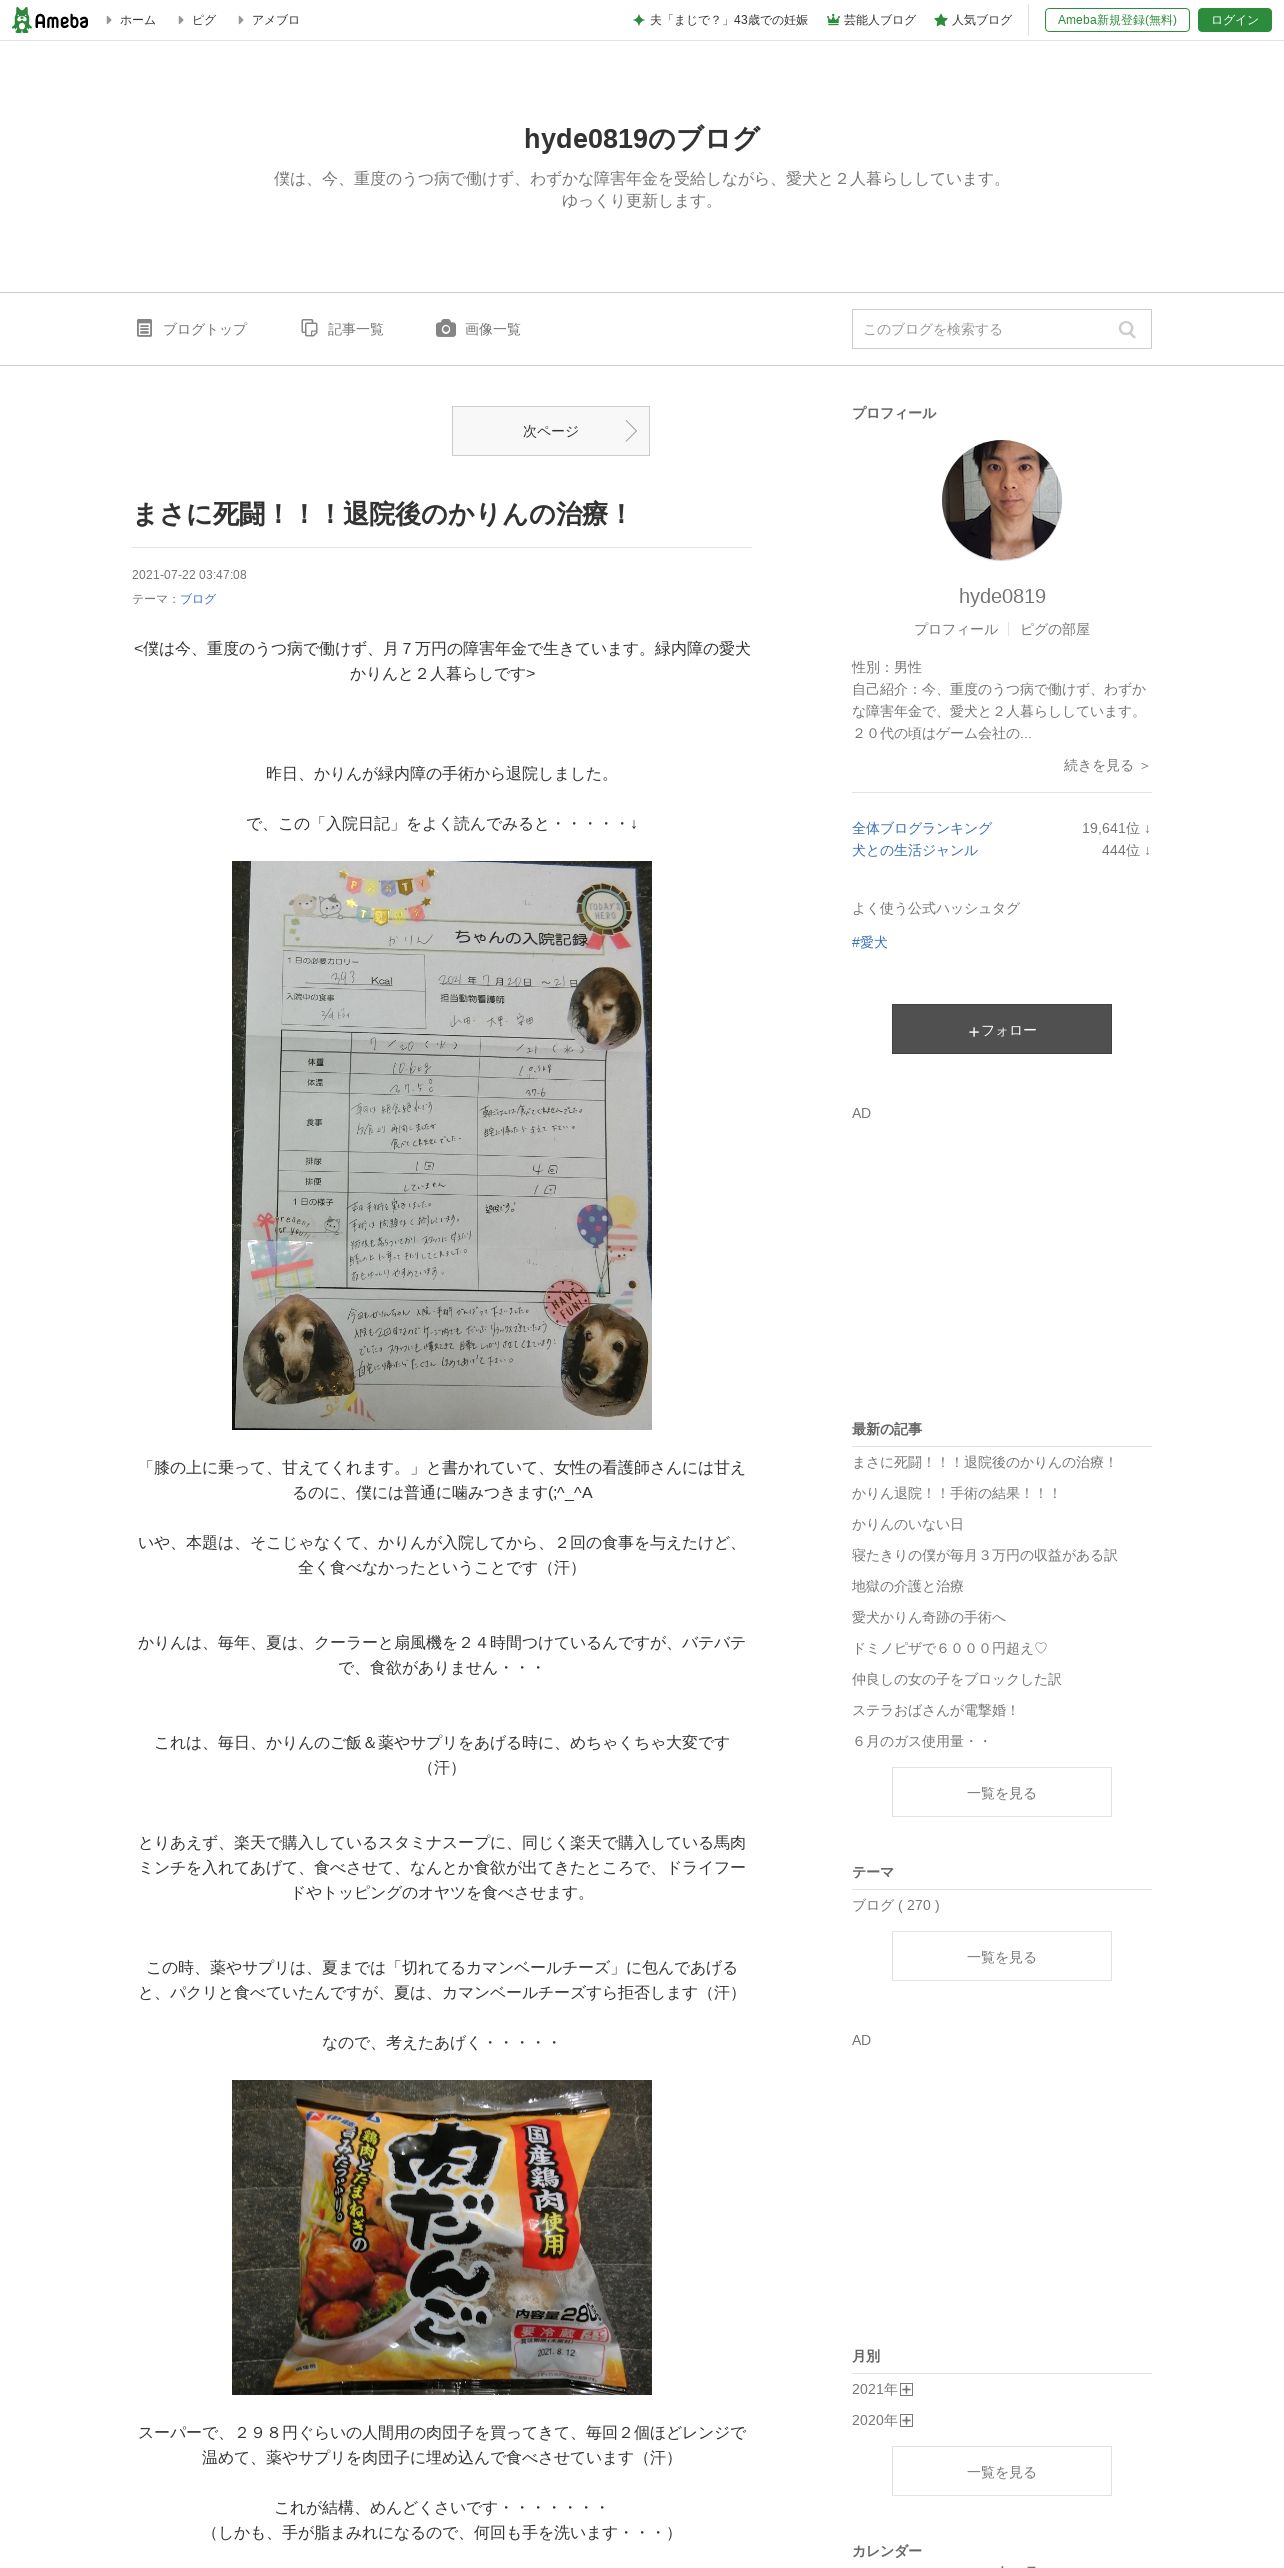 Ameba
ホーム
ピグ
アメブロ
夫「まじで？」43歳での妊娠
芸能人ブログ
人気ブログ
Ameba新規登録(無料)
ログイン
hyde0819のブログ
僕は、今、重度のうつ病で働けず、わずかな障害年金を受給しながら、愛犬と２人暮らししています。
ゆっくり更新します。
ブログトップ
記事一覧
画像一覧
このブログを検索する
次ページ
まさに死闘！！！退院後のかりんの治療！
2021-07-22 03:47:08
テーマ：ブログ
<僕は今、重度のうつ病で働けず、月７万円の障害年金で生きています。緑内障の愛犬
かりんと２人暮らしです>
昨日、かりんが緑内障の手術から退院しました。
で、この「入院日記」をよく読んでみると・・・・・↓
PARTY
TODAY'S HERO
かりん ちゃんの入院記録
１日の必要カロリー
393 Kcal
2021年7月20日 ～21日
入院中の食事
担当動物看護師
7/20（火）
/21（水）
体重
10.6kg
体温
37.5℃
37.6
食事
排尿
1回
4回
排便
していません
1回
１日の様子
HAVE FUN!
「膝の上に乗って、甘えてくれます。」と書かれていて、女性の看護師さんには甘え
るのに、僕には普通に噛みつきます(;^_^A
いや、本題は、そこじゃなくて、かりんが入院してから、２回の食事を与えたけど、
全く食べなかったということです（汗）
かりんは、毎年、夏は、クーラーと扇風機を２４時間つけているんですが、バテバテ
で、食欲がありません・・・
これは、毎日、かりんのご飯＆薬やサプリをあげる時に、めちゃくちゃ大変です
（汗）
とりあえず、楽天で購入しているスタミナスープに、同じく楽天で購入している馬肉
ミンチを入れてあげて、食べさせて、なんとか食欲が出てきたところで、ドライフー
ドやトッピングのオヤツを食べさせます。
この時、薬やサプリは、夏までは「切れてるカマンベールチーズ」に包んであげる
と、パクリと食べていたんですが、夏は、カマンベールチーズすら拒否します（汗）
なので、考えたあげく・・・・・
伊藤ハム
鶏肉とたまねぎの
旨みたっぷり。
肉だんご
国産鶏肉使用
内容量280g
要冷蔵
2021.8.12
スーパーで、２９８円ぐらいの人間用の肉団子を買ってきて、毎回２個ほどレンジで
温めて、薬やサプリを肉団子に埋め込んで食べさせています（汗）
これが結構、めんどくさいです・・・・・・・
（しかも、手が脂まみれになるので、何回も手を洗います・・・）
プロフィール
hyde0819
プロフィール
ピグの部屋
性別：男性
自己紹介：今、重度のうつ病で働けず、わずか
な障害年金で、愛犬と２人暮らししています。
２０代の頃はゲーム会社の...
続きを見る ＞
全体ブログランキング 19,641位 ↓
犬との生活ジャンル 444位 ↓
よく使う公式ハッシュタグ
#愛犬
+フォロー
AD
最新の記事
まさに死闘！！！退院後のかりんの治療！
かりん退院！！手術の結果！！！
かりんのいない日
寝たきりの僕が毎月３万円の収益がある訳
地獄の介護と治療
愛犬かりん奇跡の手術へ
ドミノピザで６０００円超え♡
仲良しの女の子をブロックした訳
ステラおばさんが電撃婚！
６月のガス使用量・・
一覧を見る
テーマ
ブログ ( 270 )
一覧を見る
AD
月別
2021年
2020年
一覧を見る
カレンダー